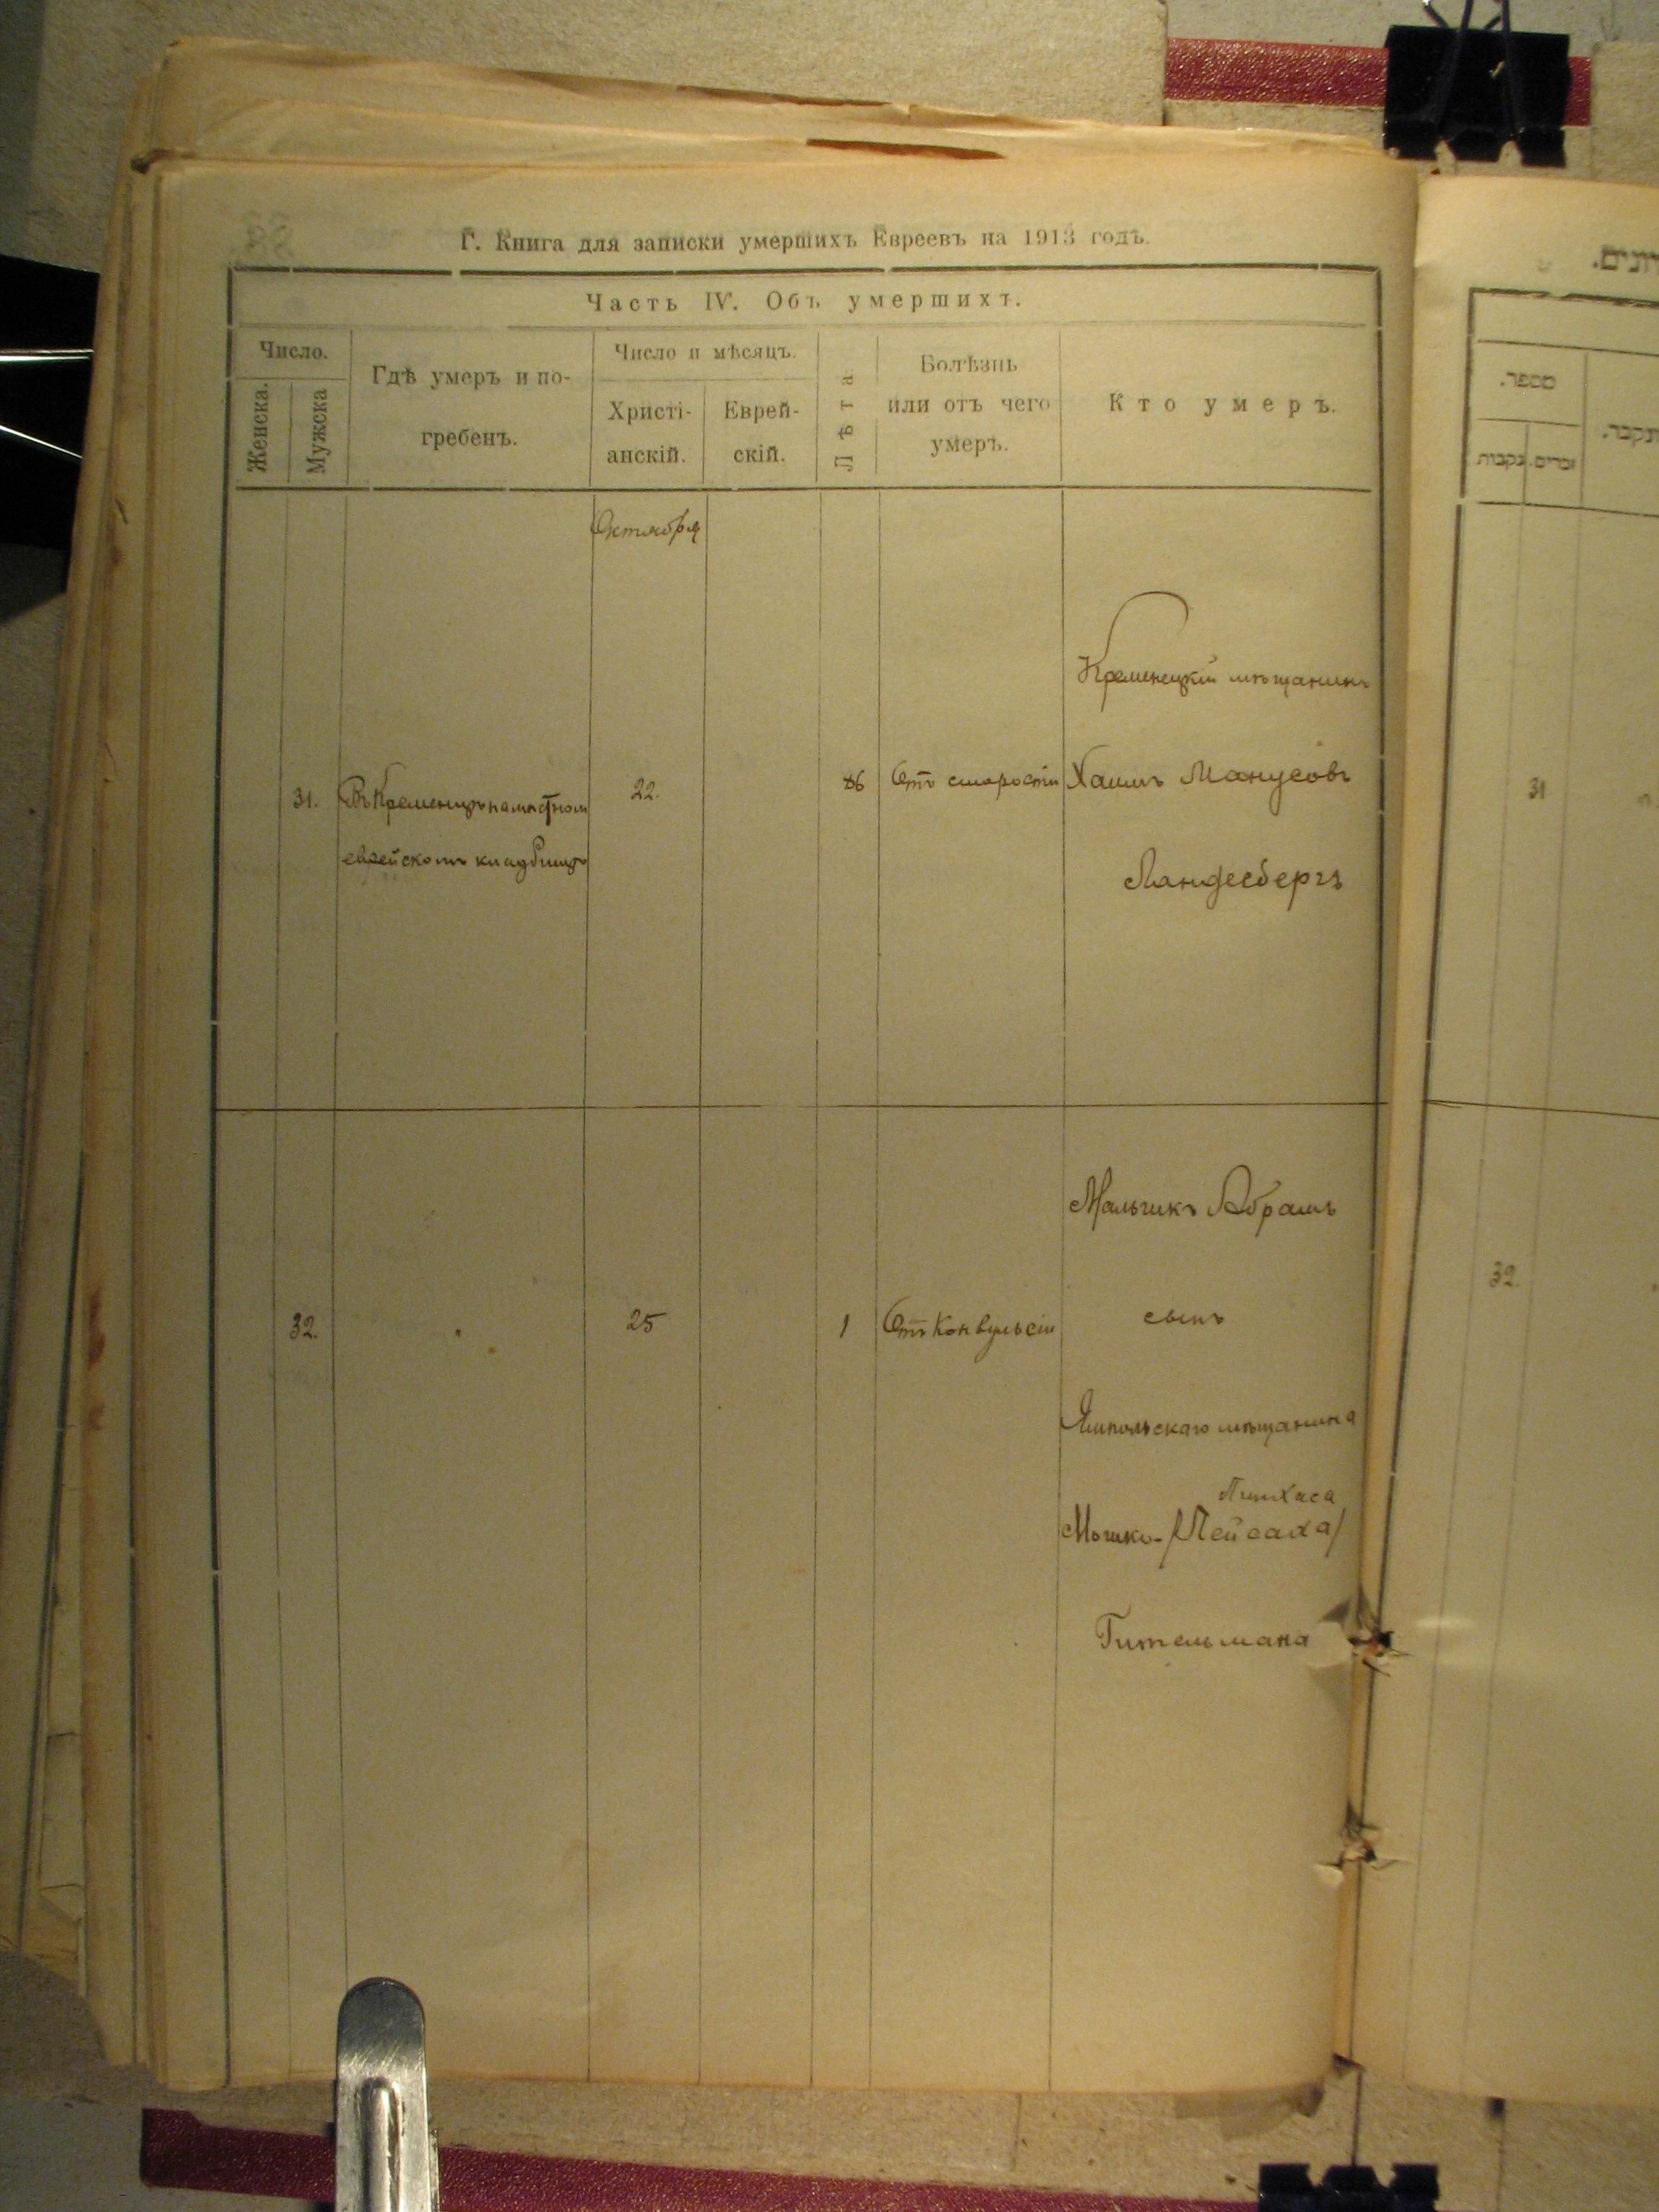 Г. Книга для записки умершихъ Евреевъ на 1913 годъ.
Часть IV. Объ умершихъ.
Число.
Женска.
Мужска
Гдѣ умеръ и по-
гребенъ.
Число и мѣсяцъ.
Христі-
анскій.
Еврей-
скій.
Лѣта
Болѣзнь
или отъ чего
умеръ.
Кто умеръ.
Октября
Кременецкій мѣщанинъ
31.
Въ Кременцѣ на мѣстном
еврейскомъ кладбищѣ
22.
86
Отъ старости
Хаимъ Манусовъ
Ландесбергъ
Мальчикъ Абрамъ
32.
"
25
1
Отъ Конвульсіи
сынъ
Ямпольскаго мѣщанина
Пинхаса
Мошко-/Пейсаха/
Гительмана
מספר.
זכרים.
נקבות
31
32.